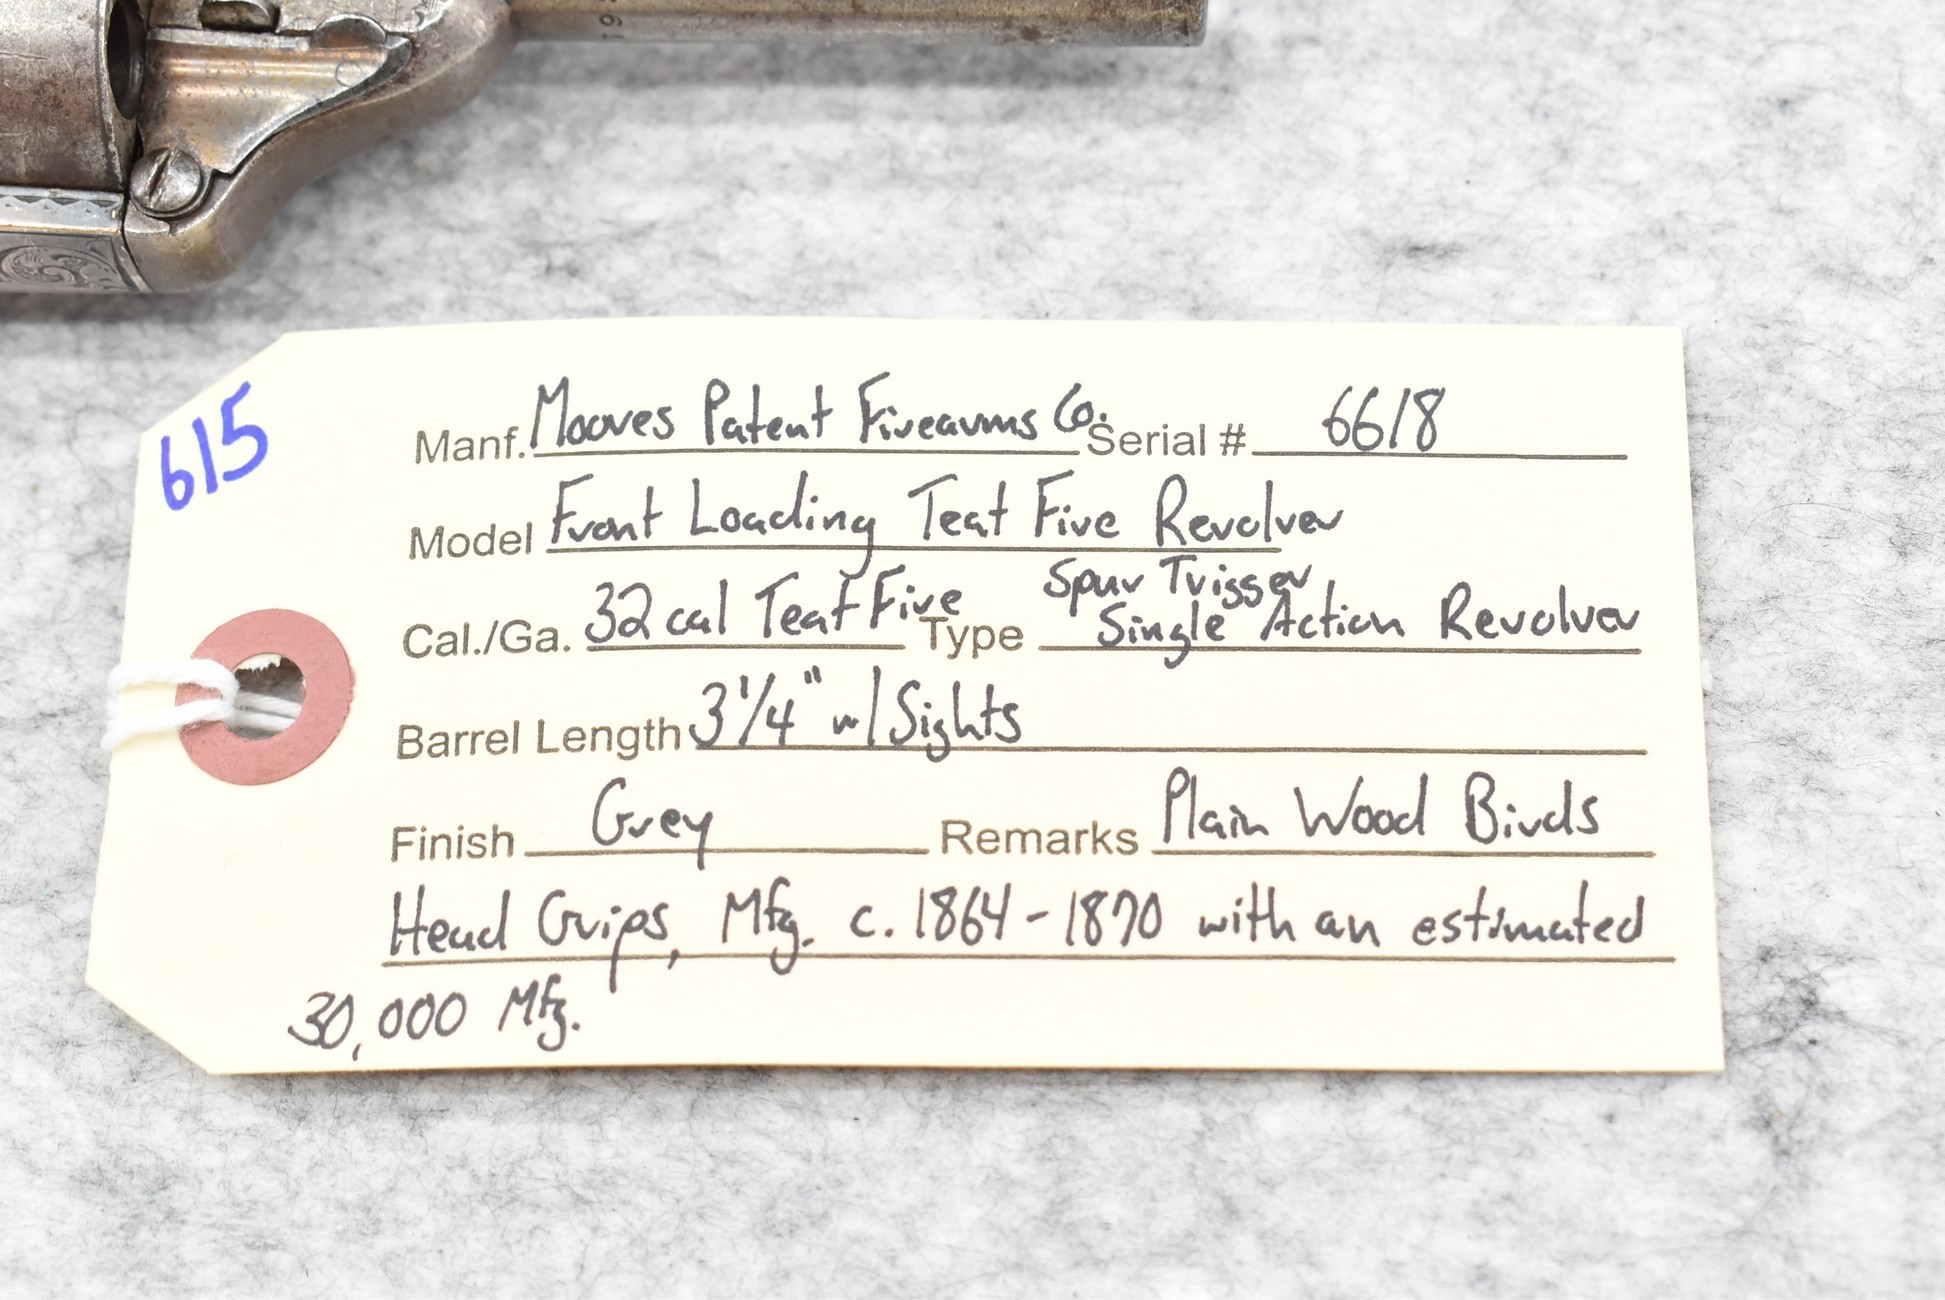 615
Manf. Moores Patent Firearms Co. Serial # 6618
Model Front Loading Teat Fire Revolver
Cal./Ga. 32 cal Teat Fire Type Spur Trigger Single Action Revolver
Barrel Length 3 1/4" w/ Sights
Finish Grey Remarks Plain Wood Birds
Head Grips, Mfg. c. 1864-1870 with an estimated
30,000 Mfg.